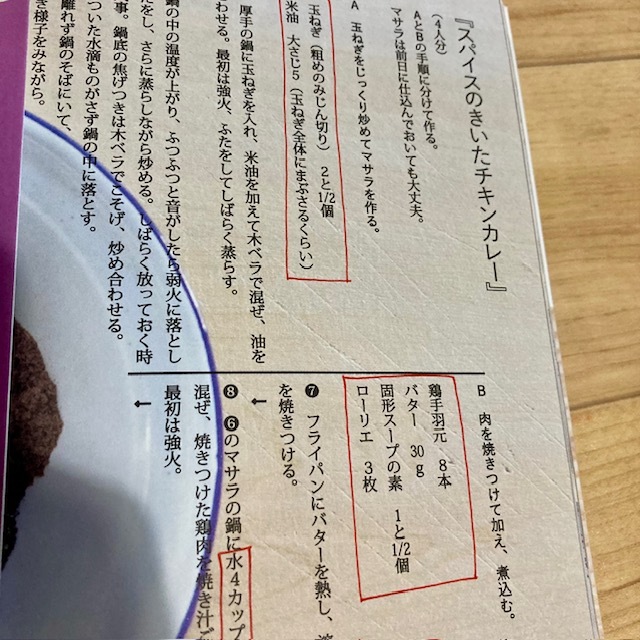 『スパイスのきいたチキンカレー』
（4人分）
AとBの手順に分けて作る。
マサラは前日に仕込んでおいても大丈夫。
A 玉ねぎをじっくり炒めてマサラを作る。
玉ねぎ（粗めのみじん切り） 2と1/2個
米油 大さじ5（玉ねぎ全体にまぶさるくらい）
厚手の鍋に玉ねぎを入れ、米油を加えて木ベラで混ぜ、油を
わせる。最初は強火、ふたをしてしばらく蒸らす。
鍋の中の温度が上がり、ふつふつと音がしたら弱火に落とし
たをし、さらに蒸らしながら炒める。しばらく放っておく時
事。鍋底の焦げつきは木ベラでこそげ、炒め合わせる。
ついた水滴ものがさず鍋の中に落とす。
離れず鍋のそばにいて、
き様子をみながら。
B 肉を焼きつけて加え、煮込む。
鶏手羽元 8本
バター 30g
固形スープの素 1と1/2個
ローリエ 3枚
❼ フライパンにバターを熱し、
を焼きつける。
↓
❽ ❻のマサラの鍋に水4カップ
混ぜ、焼きつけた鶏肉を焼き汁ご
最初は強火。
↓